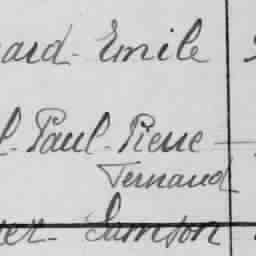 ard - Emile
l - Paul - Pierre
Fernand
er - Samson